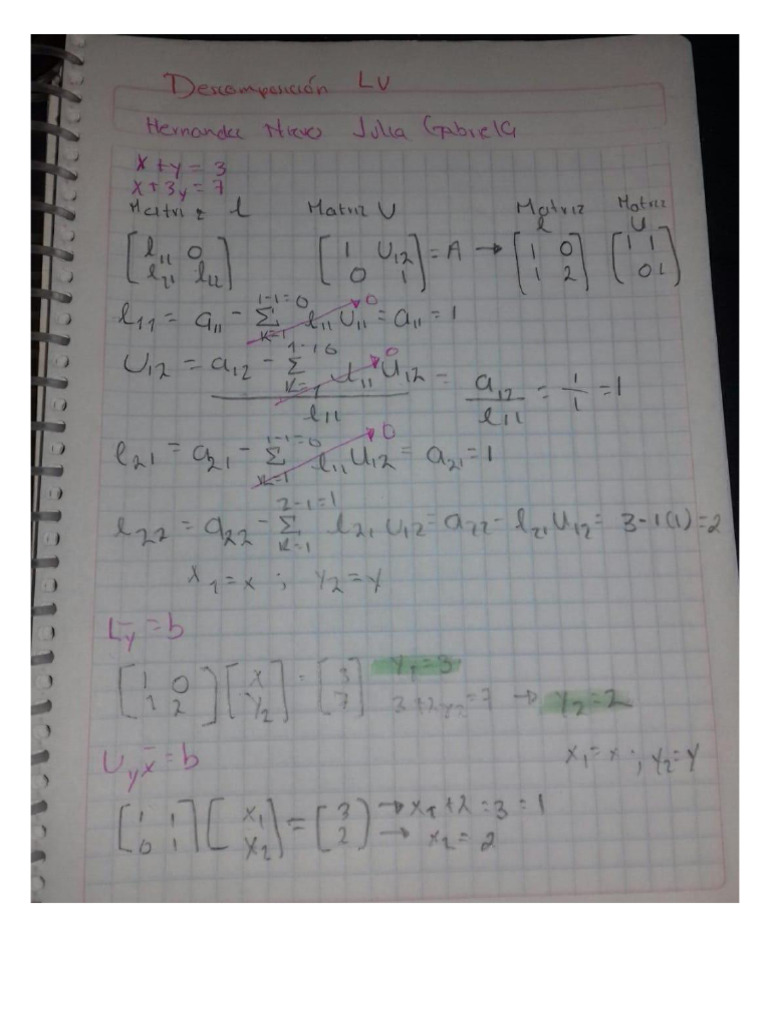 Descomposición LU
Hernandez Nievo Julia Gabriela
x + y = 3
x + 3y = 7
Matriz l Matriz U Matriz l Matriz U
[l11 0; l21 l22] [1 U12; 0 1] = A → [1 0; 1 2] [1 1; 0 1]
l11 = a11 - Σ(k=1, 1-1=0) l11 U11 → 0 = a11 = 1
U12 = (a12 - Σ(k=1, 1-1 0) l11 U12 → 0) / l11 = a12 / l11 = 1/1 = 1
l21 = a21 - Σ(k=1, 1-1=0) l11 U12 → 0 = a21 = 1
l22 = a22 - Σ(k=1, 2-1=1) l21 U12 = a22 - l21 U12 = 3 - 1(1) = 2
x1 = x ; y2 = y
Lȳ = b
[1 0; 1 2] [x; y2] = [3; 7] y1 = 3
3 + 2y2 = 7 → y2 = 2
Uyx̄ = b x1 = x ; y2 = y
[1 1; 0 1] [x1; x2] = [3; 2] → x1 + 2 = 3 = 1
→ x2 = 2